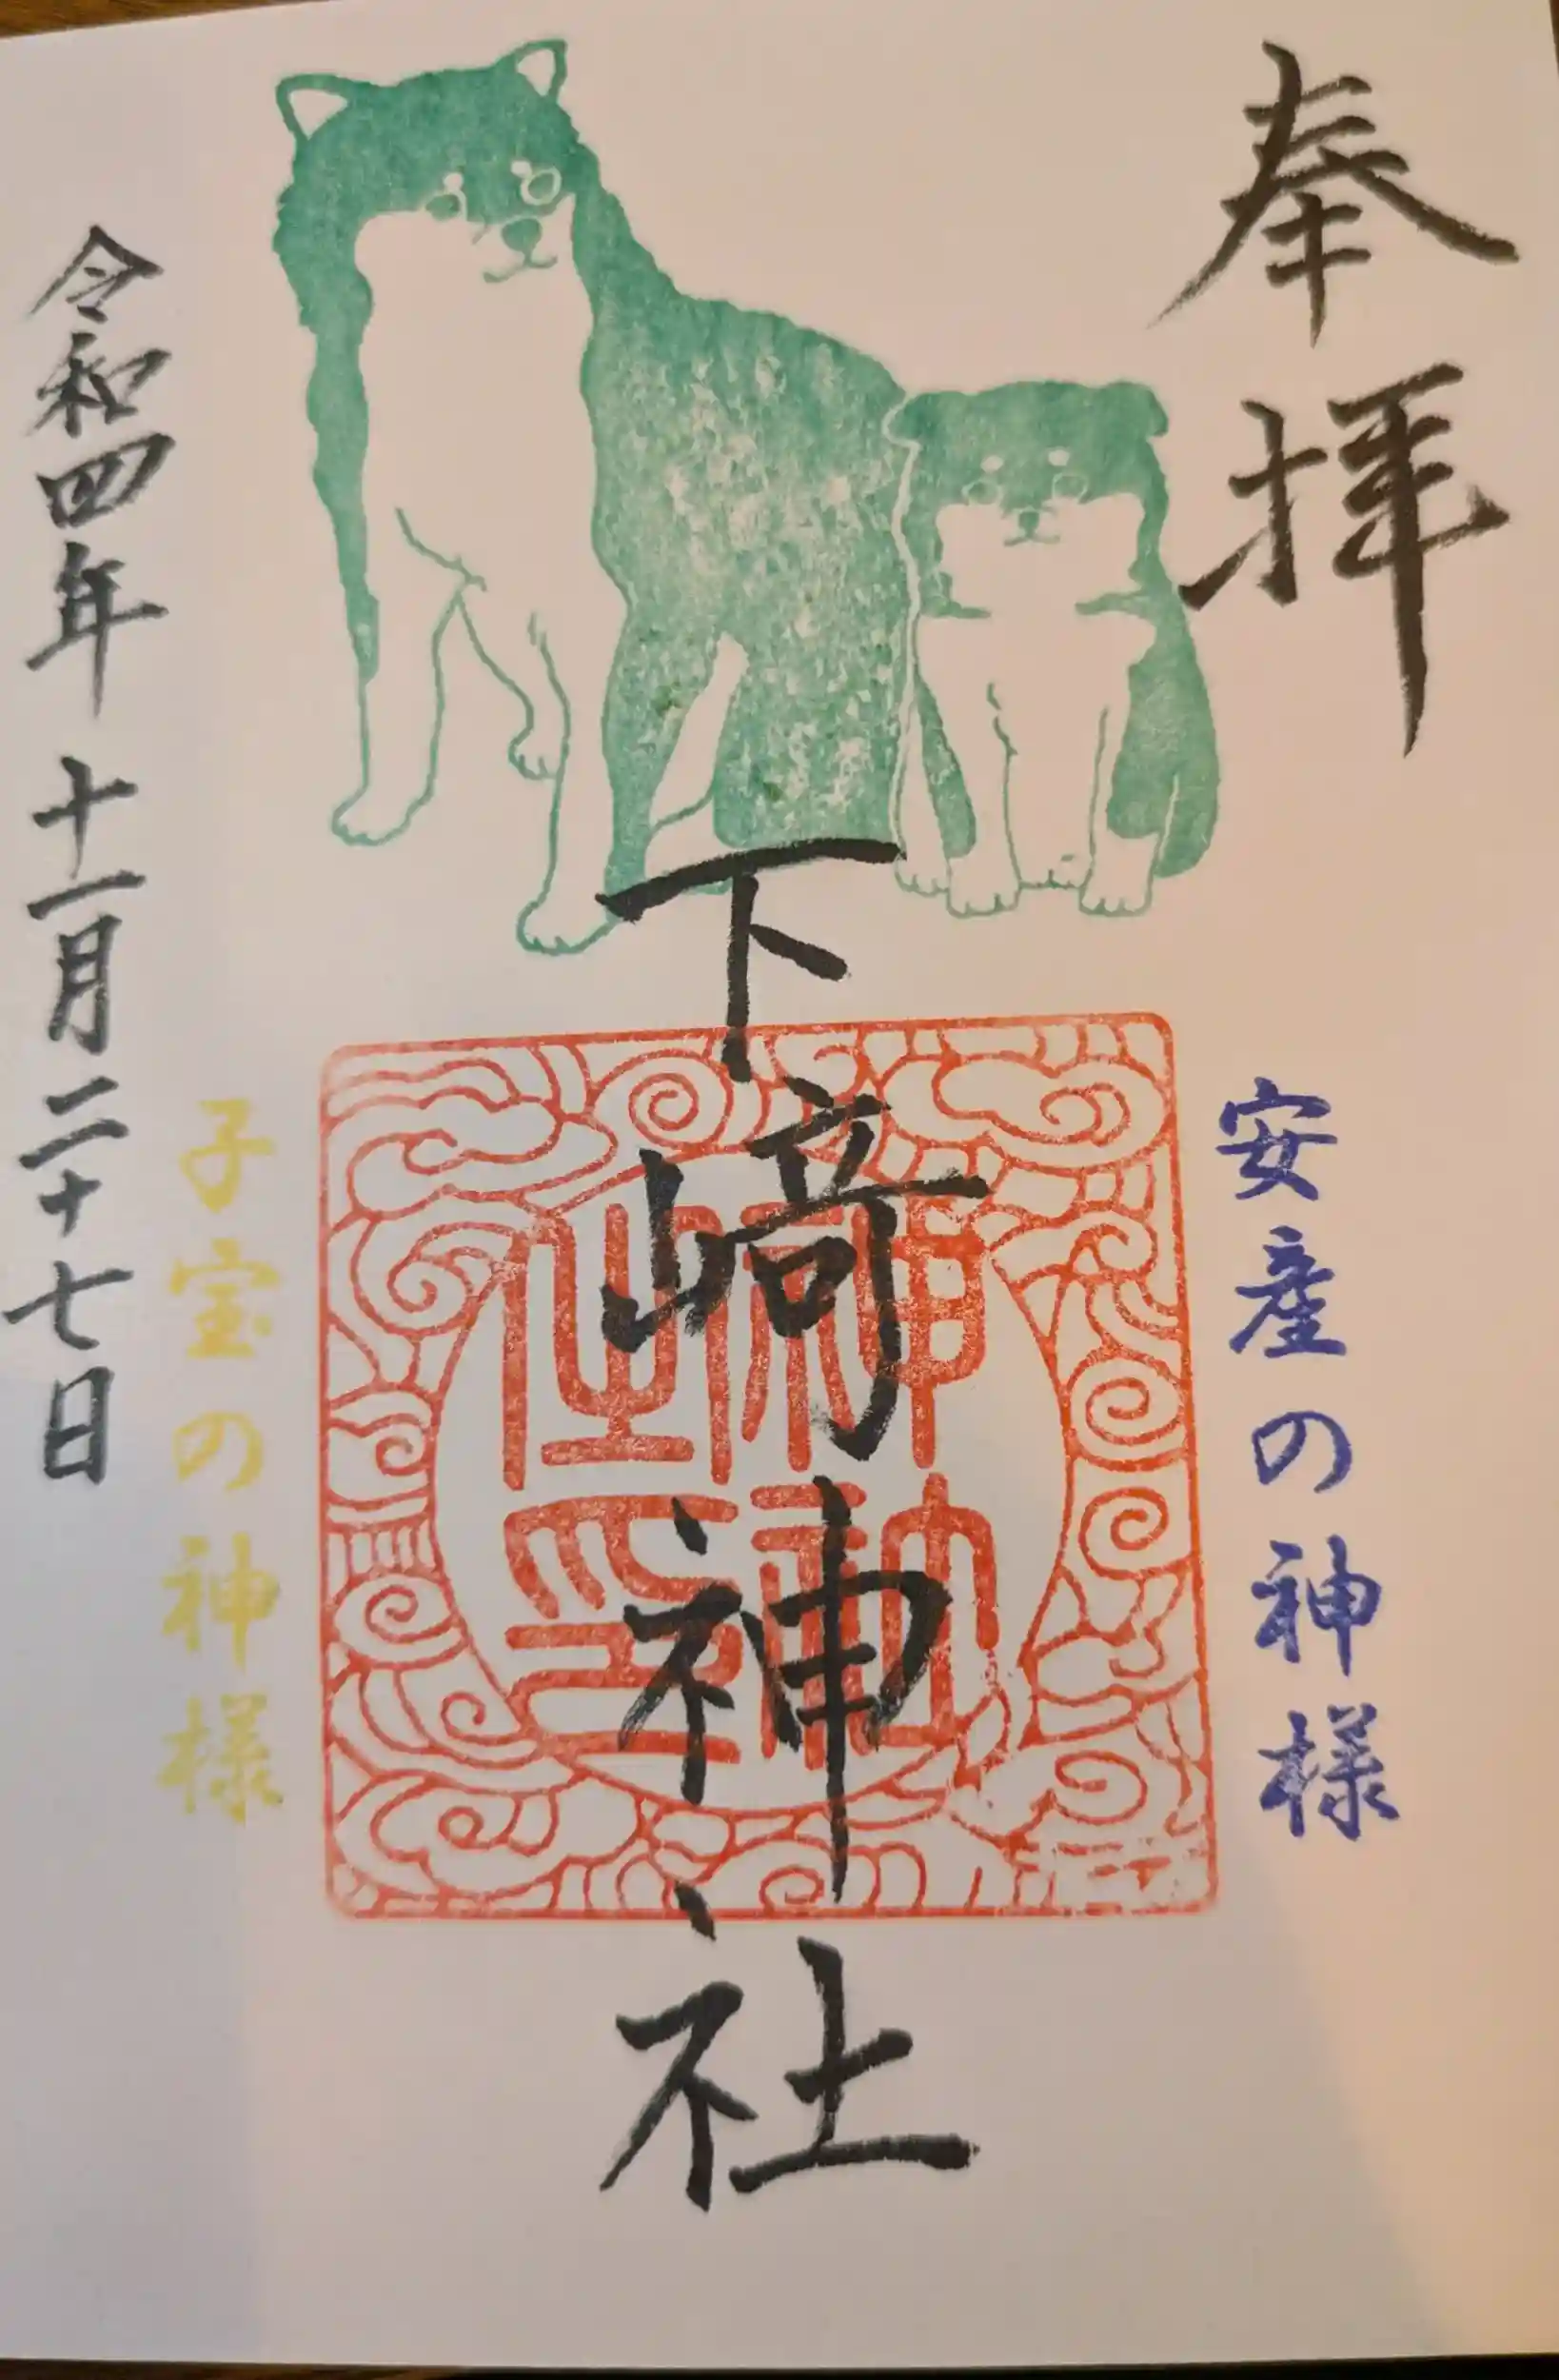 奉拝
安産の神様
下崎神社
子宝の神様
令和四年 十一月二十七日